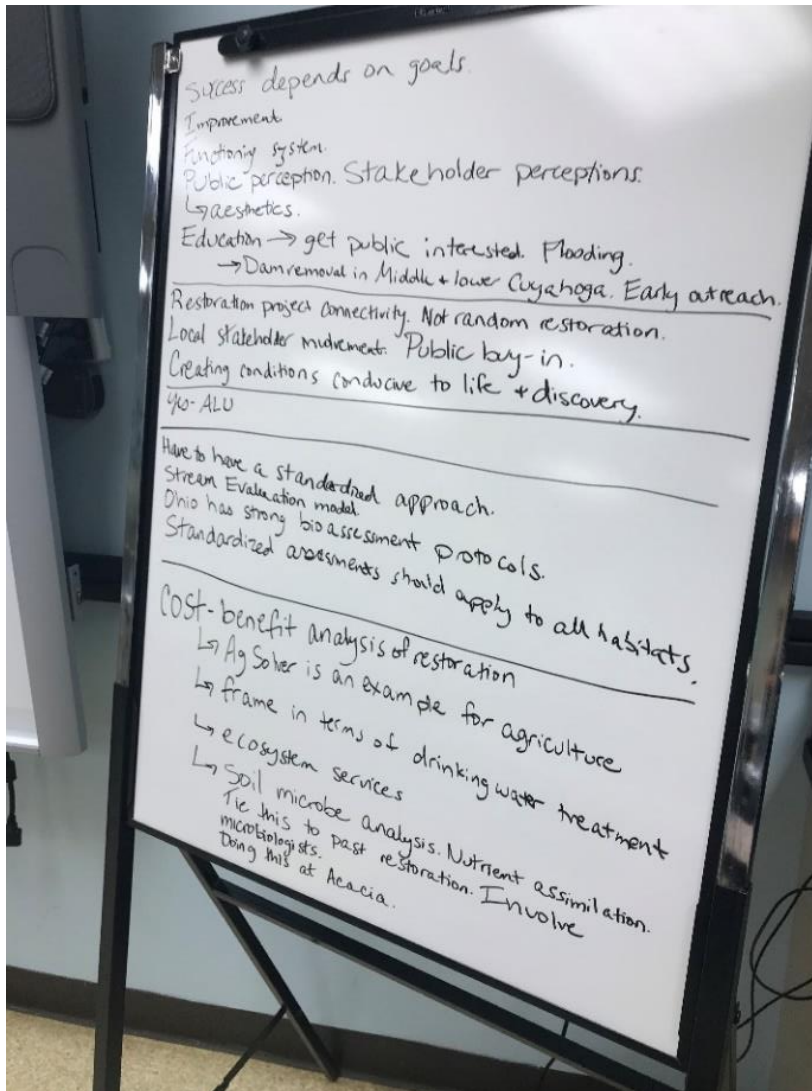 Success depends on goals.
Improvement
Functioning system.
Public perception. Stakeholder perceptions.
↳ aesthetics.
Education → get public interested. Flooding.
→ Dam removal in Middle + lower Cuyahoga. Early outreach.
Restoration project connectivity. Not random restoration.
Local stakeholder involvement. Public buy-in.
Creating conditions conducive to life + discovery.
ALU
Have to have a standardized approach.
Stream Evaluation model.
Ohio has strong bioassessment protocols.
Standardized assessments should apply to all habitats.
Cost-benefit analysis of restoration
↳ Ag Solver is an example for agriculture
↳ frame in terms of drinking water treatment
↳ ecosystem services
↳ Soil microbe analysis. Nutrient assimilation.
Tie this to past restoration. Involve
microbiologists.
Doing this at Acacia.